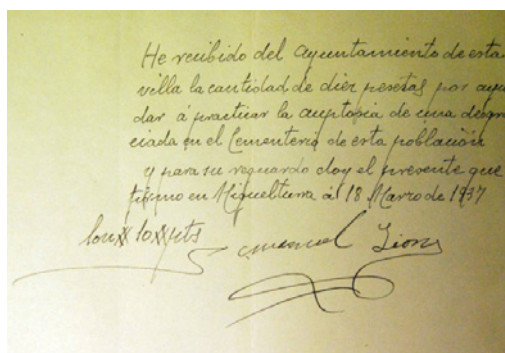 He recibido del Ayuntamiento de esta
villa la cantidad de diez pesetas por ayu
dar á practicar la auptosia de una desgra
ciada en el Cementerio de esta población
y para su reguardo doy el presente que
firmo en Miguelturra á 18 Marzo de 1937
10 pts
Emanuel